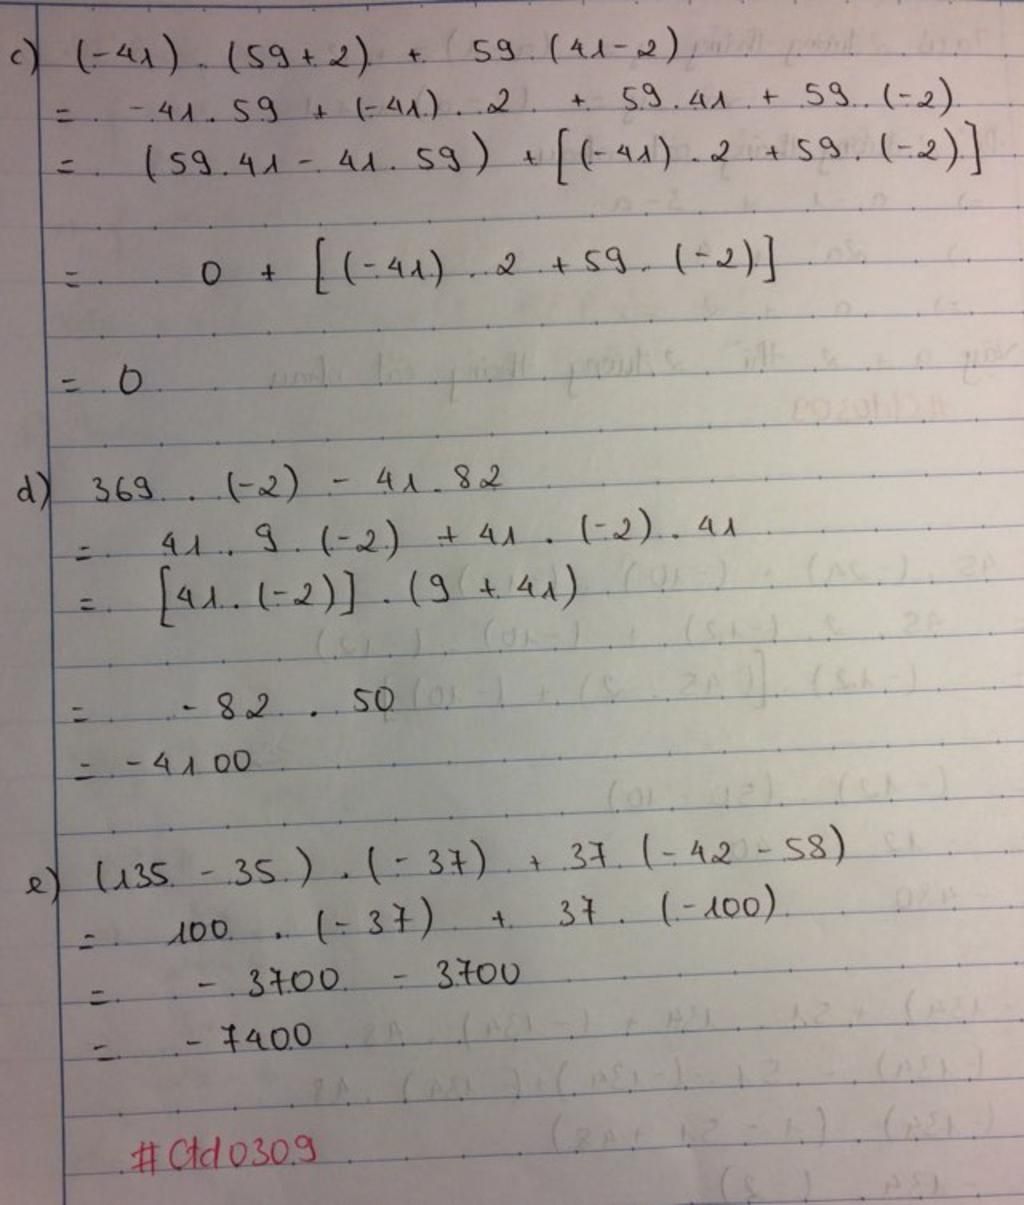 c) (-41) . (59+2) + 59 . (41-2)
= -41 . 59 + (-41) . 2 + 59 . 41 + 59 . (-2)
= (59 . 41 - 41 . 59) + [(-41) . 2 + 59 . (-2)]
= 0 + [(-41) . 2 + 59 . (-2)]
= 0
d) 369 . (-2) - 41 . 82
= 41 . 9 . (-2) + 41 . (-2) . 41
= [41 . (-2)] . (9 + 41)
= -82 . 50
= -4100
e) (135 - 35) . (-37) + 37 . (-42 - 58)
= 100 . (-37) + 37 . (-100)
= -3700 - 3700
= -7400
#Ctd0309